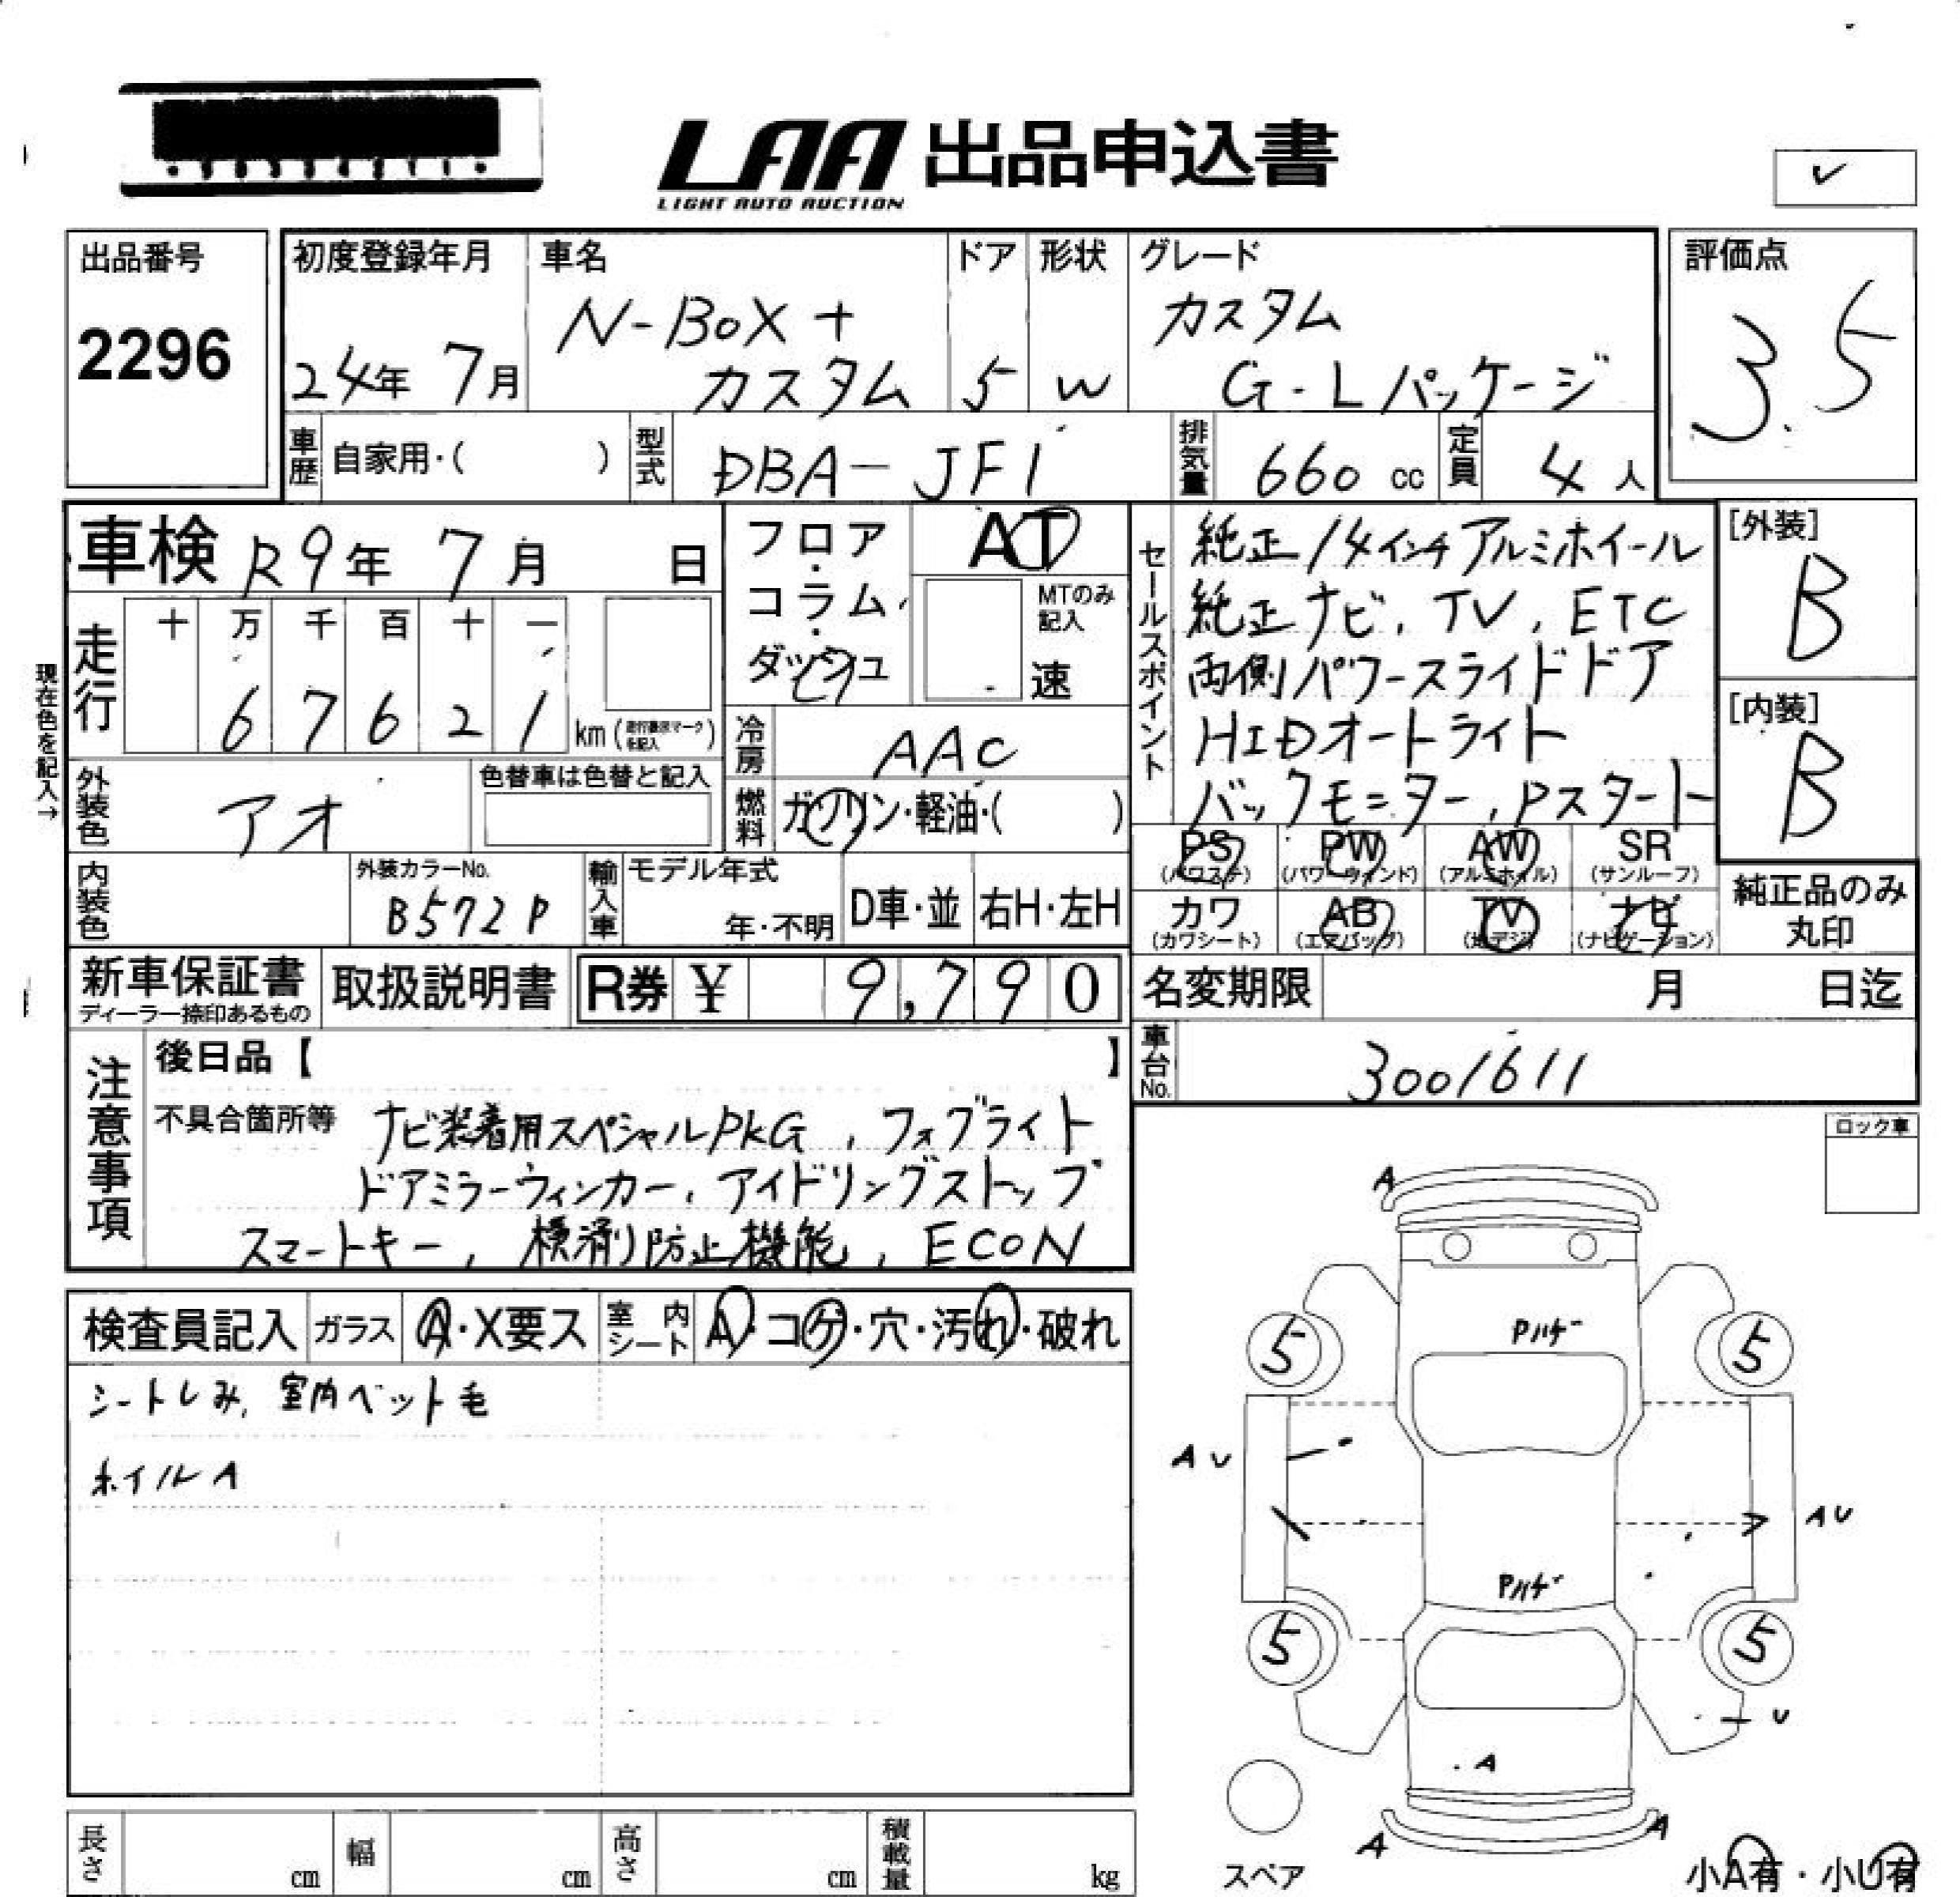 LAA 出品申込書
LIGHT AUTO AUCTION
出品番号
2296
初度登録年月
24年 7月
車名
N-BOX+
カスタム
ドア
5
形状
W
グレード
カスタム
G・Lパッケージ
評価点
3.5
車歴
自家用・( )
型式
DBA-JF1
排気量
660 cc
定員
4 人
車検 R9年 7月 日
走行
十 万 千 百 十 一
6 7 6 2 1 km
現在色を記入→
外装色
アオ
色替車は色替と記入
内装色
外装カラーNo.
B572P
輸入車
モデル年式
年・不明
D車・並
右H・左H
フロア
・
コラム
・
ダッシュ
AT
MTのみ
記入
速
冷房
AAC
燃料
ガソリン・軽油・( )
セールスポイント
純正14インチアルミホイール
純正ナビ, TV, ETC
両側パワースライドドア
HIDオートライト
バックモニター, Pスタート
[外装]
B
[内装]
B
PS (パワステ)
PW (パワーウィンド)
AW (アルミホイル)
SR (サンルーフ)
カワ (カワシート)
AB (エアバッグ)
TV (地デジ)
ナビ (ナビゲーション)
純正品のみ
丸印
新車保証書
ディーラー捺印あるもの
取扱説明書
R券 ¥ 9,790
名変期限 月 日迄
車台No.
3001611
注意事項
後日品【 】
不具合箇所等 ナビ装着用スペシャルPKG, フォグライト
ドアミラーウィンカー, アイドリングストップ
スマートキー, 横滑り防止機能, ECON
ロック車
検査員記入
ガラス
A・X要ス
室内シート
A・コゲ・穴・汚れ・破れ
シートしみ, 室内ペット毛
ホイルA
A
Pハゲ
5 5
AU
AU
Pハゲ
5 5
U
A
A A
スペア
小A有・小U有
長さ cm
幅 cm
高さ cm
積載量 kg